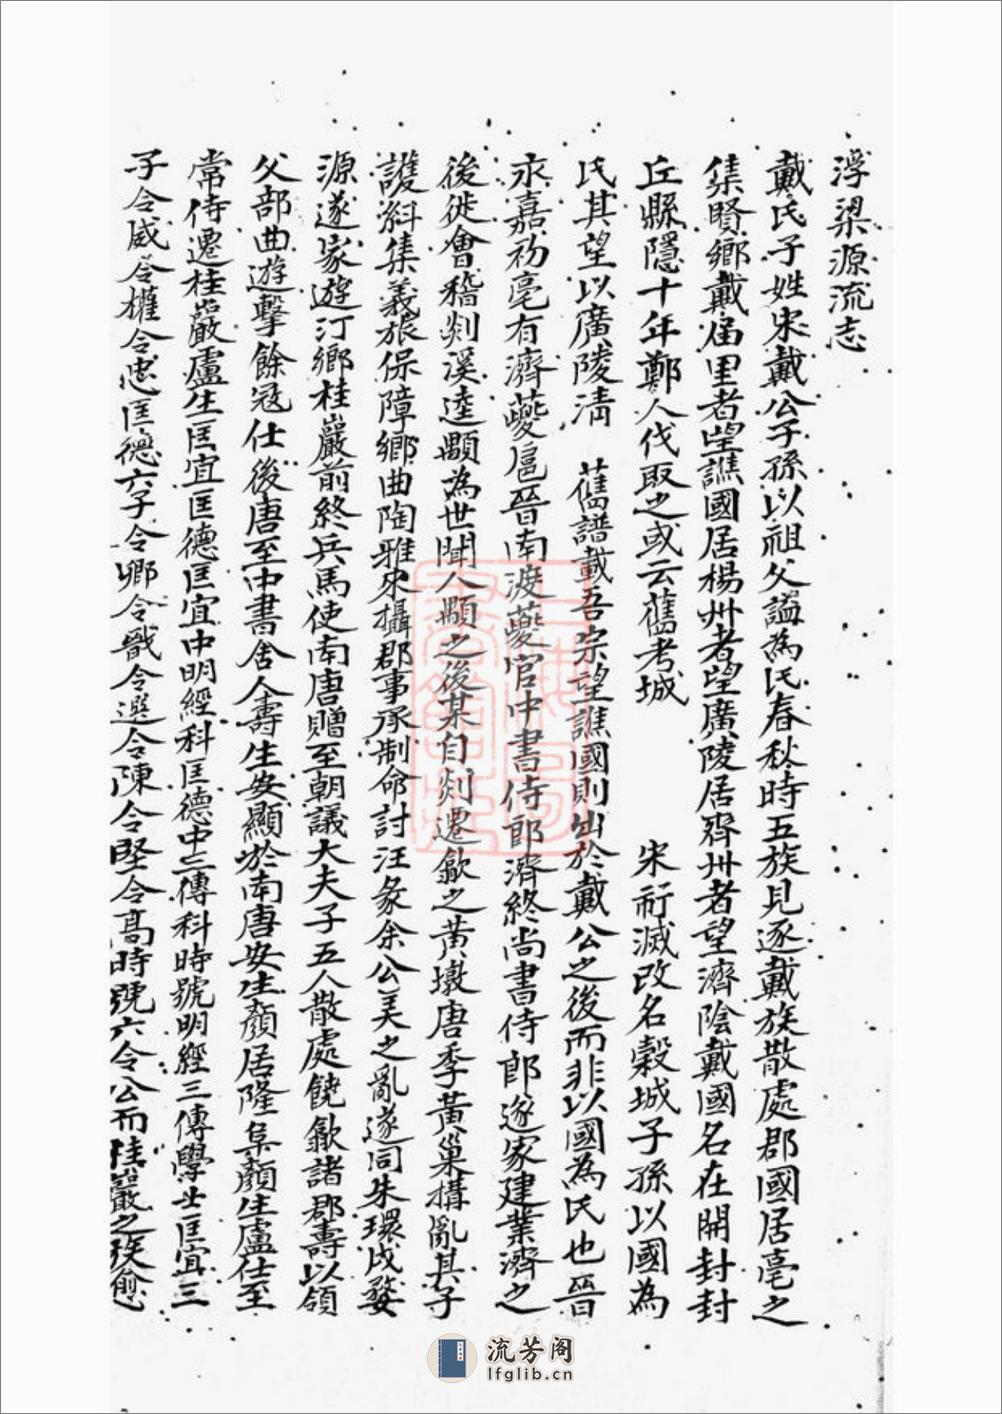 浮梁源流志
戴氏子姓宋戴公子孫以祖父謚為氏春秋時五族見逐戴族散處郡國居亳之
集賢鄉戴届里者望譙國居楊州者望廣陵居齊州者望濟陰戴國名在開封封
丘縣隱十年鄭人伐取之或云舊考城 宋衎滅改名穀城子孫以國為
氏其望以廣陵清 舊譜載吾宗望譙國則出於戴公之後而非以國為氏也晉
永嘉初亳有濟夔扈晉南渡夔官中書侍郎濟終尚書侍郎遂家建業濟之
後徙會稽剡溪逵顒為世聞人顒之後某自剡遷歙之黃墩唐季黃巢搆亂其子
護糾集義旅保障鄉曲陶雅來攝郡事承制命討汪彖余公美之亂遂同朱環戍婺
源遂家遊汀鄉桂巖前終兵馬使南唐贈至朝議大夫子五人散處饒歙諸郡壽以領
父部曲遊擊餘冦仕後唐至中書舍人壽生安顯於南唐安生顏居隆阜顏生盧仕至
常侍遷桂巖盧生匡宜匡德匡宜中明經科匡德中三傳科時號明經三傳學士匡宜三
子令威令權令忠匡德六子令卿令戩令選令陳令堅令高時號六令公而桂巖之族愈
流芳阁
lfglib.cn